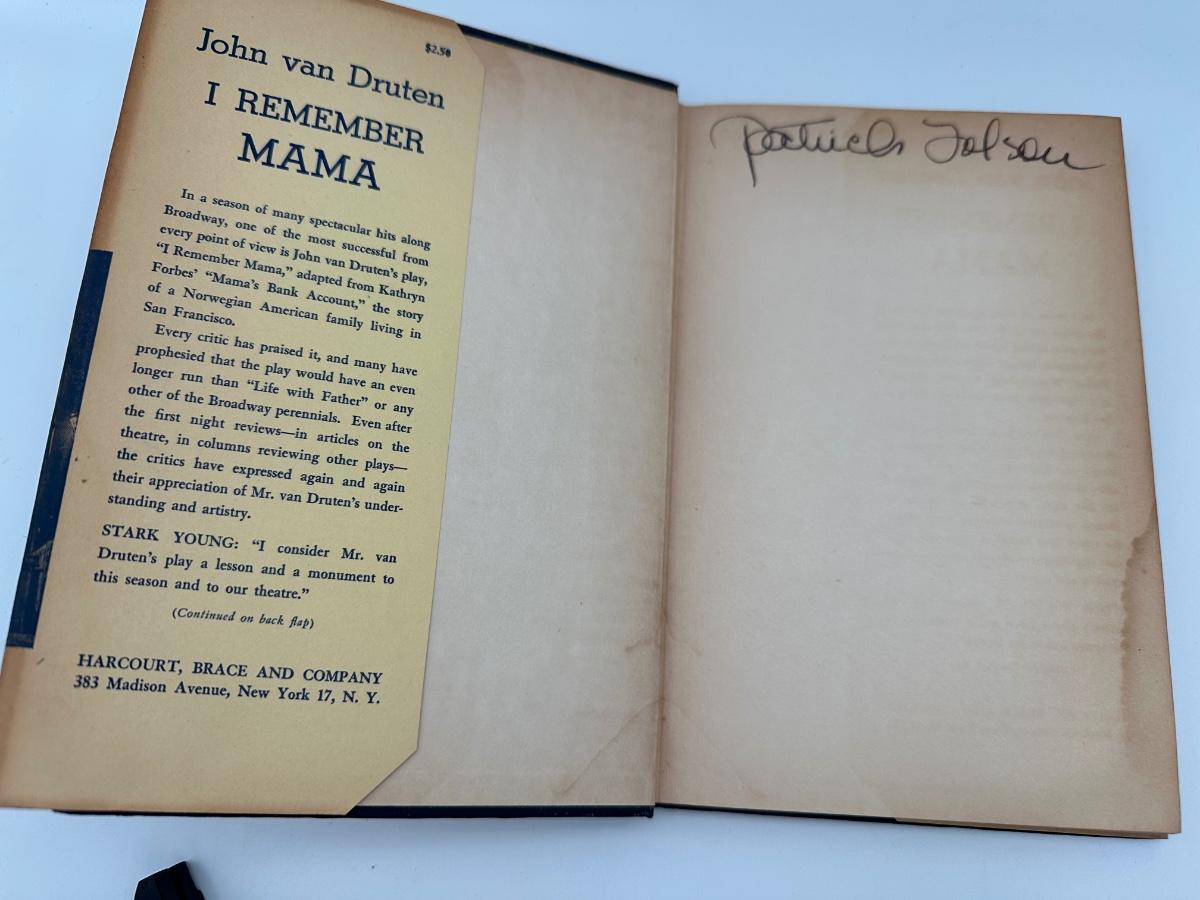 $2.50
John van Druten
I REMEMBER
MAMA
In a season of many spectacular hits along
Broadway, one of the most successful from
every point of view is John van Druten's play,
“I Remember Mama,” adapted from Kathryn
Forbes' “Mama's Bank Account,” the story
of a Norwegian American family living in
San Francisco.
Every critic has praised it, and many have
prophesied that the play would have an even
longer run than “Life with Father” or any
other of the Broadway perennials. Even after
the first night reviews—in articles on the
theatre, in columns reviewing other plays—
the critics have expressed again and again
their appreciation of Mr. van Druten's under-
standing and artistry.
STARK YOUNG: “I consider Mr. van
Druten's play a lesson and a monument to
this season and to our theatre.”
(Continued on back flap)
HARCOURT, BRACE AND COMPANY
383 Madison Avenue, New York 17, N. Y.
Tolson